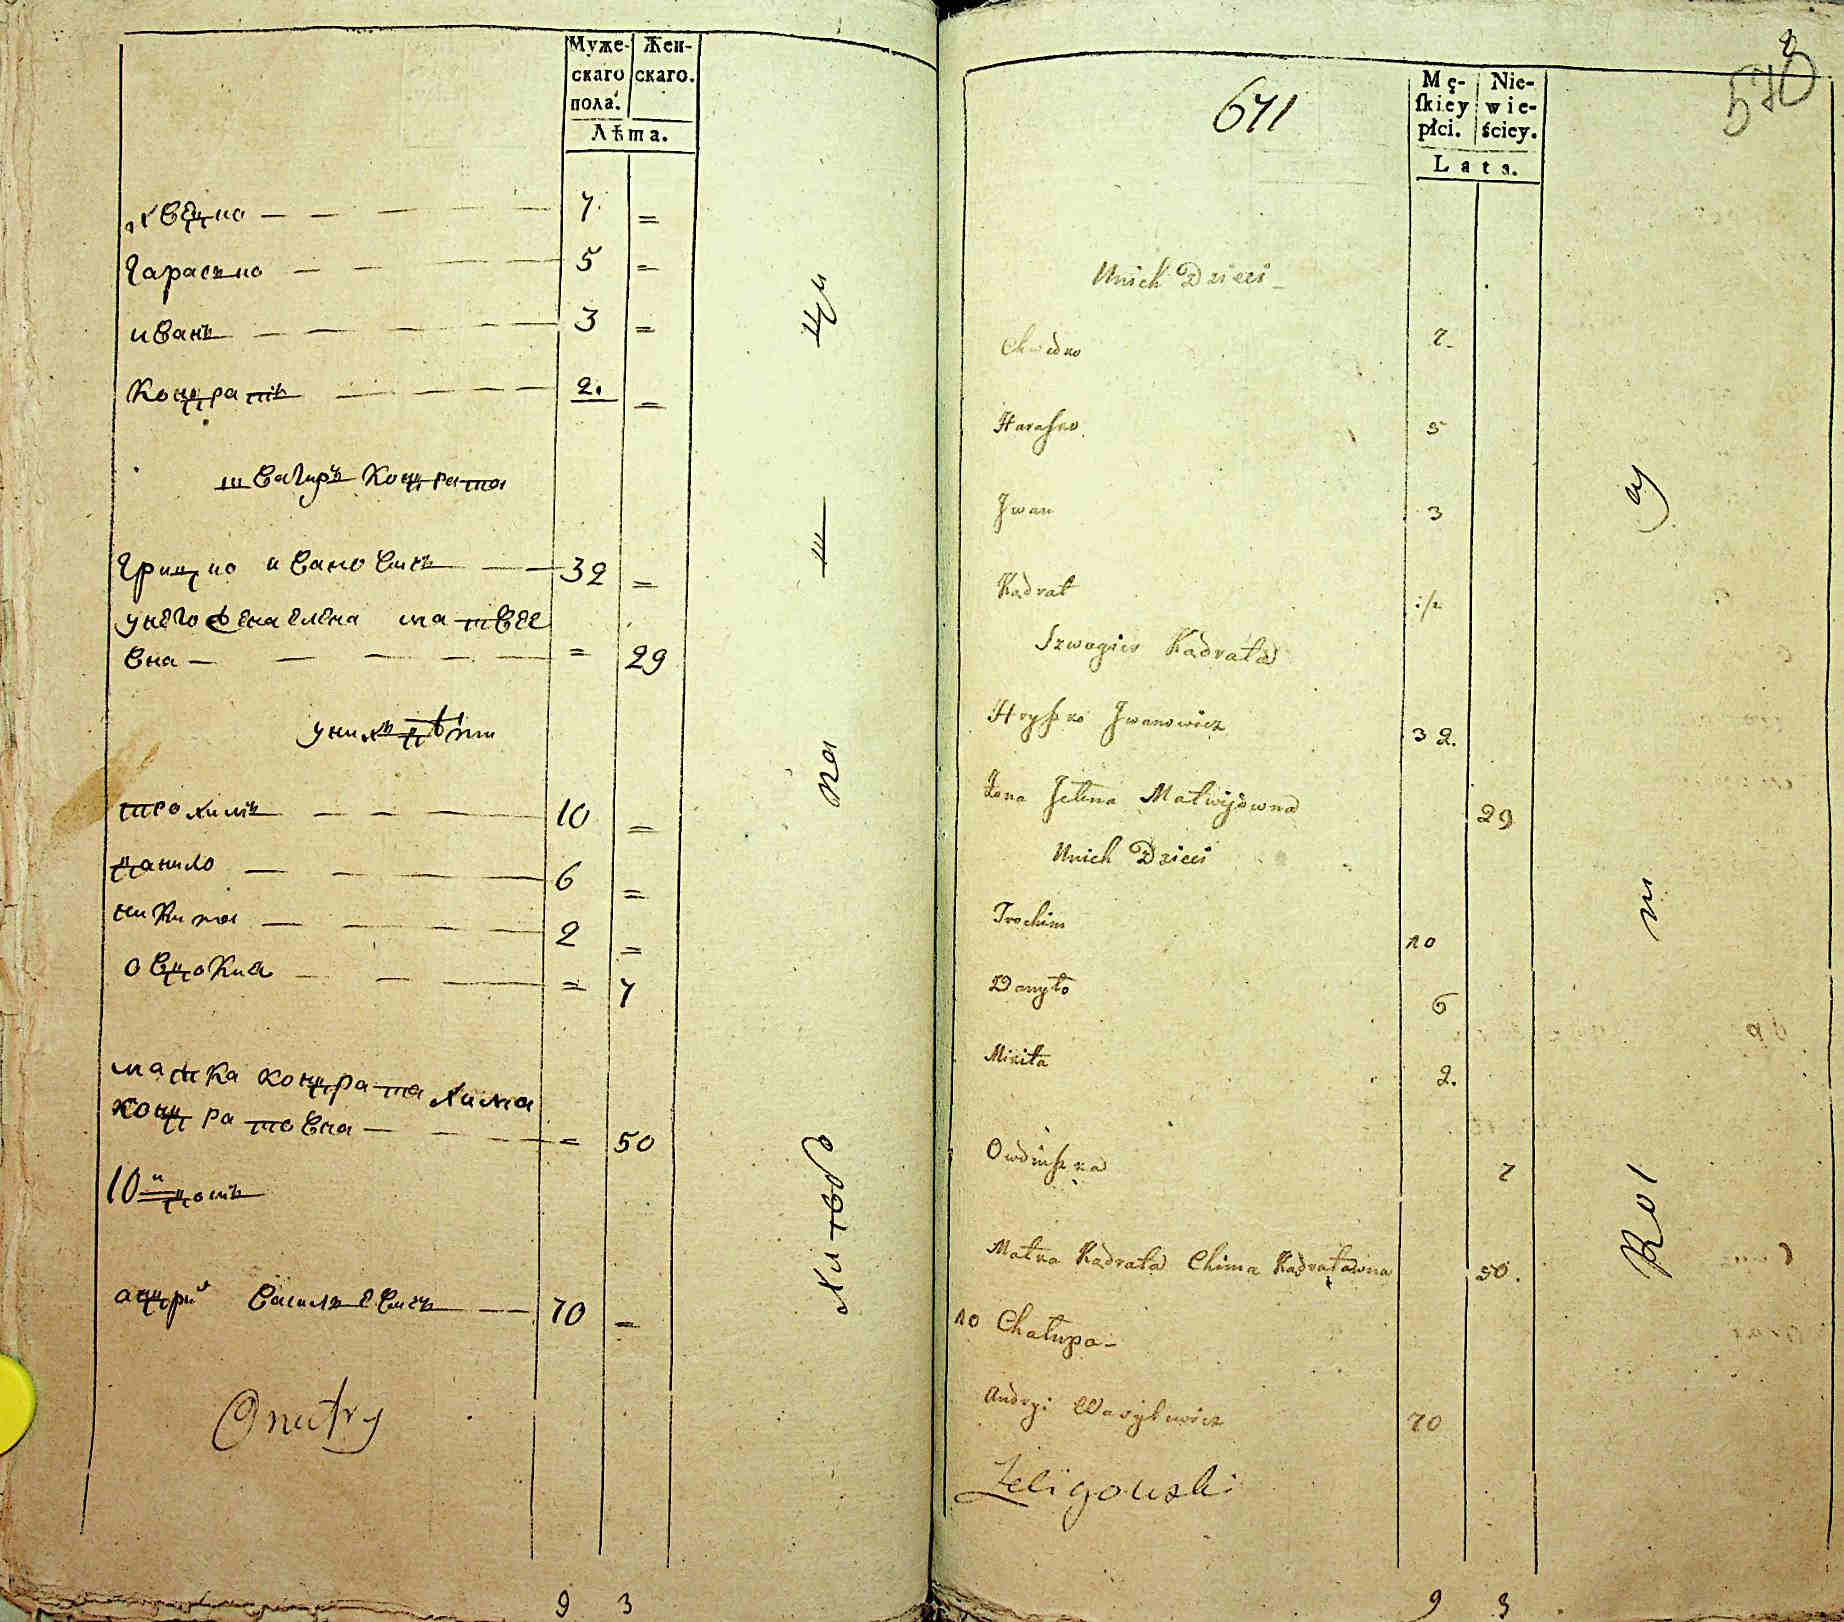 Муже- Жен-
скаго скаго.
пола.
Лѣта.
хведко — — — 7. =
Гарасько — — — 5 =
иванъ — — — 3 =
Кондратъ — — — 2. =
швагиръ Кондрата
Гришко ивановичъ — — 32 =
унего жена елена матвее
вна — — — = 29
унихъ дѣти
трохимъ — — — 10 =
данило — — — 6 =
никита — — — 2 =
овдокиа — — — = 7
матка кондрата хима
кондратовна — — — = 50
10й домъ
андрий василевичъ — — 70 =
9 3
671
570
Mę- Nie-
ſkiey wie-
płci. ściey.
Lata.
Unich Dzieci
Chwedko 7.
Haraſko 5
Jwan 3
Kadrat
Szwagier Kadrata
Hryſzko Jwanowicz 32.
Zona Jelena Matwijówna 29
Unich Dzieci
Trochim 10
Danyło 6
Mikita 2.
Owdiuſzka 7
Matka Kadrata Chima Kadratawna 50.
10 Chałupa
Andryi Wasylewicz 70
Zeligowski
Rol
9 3